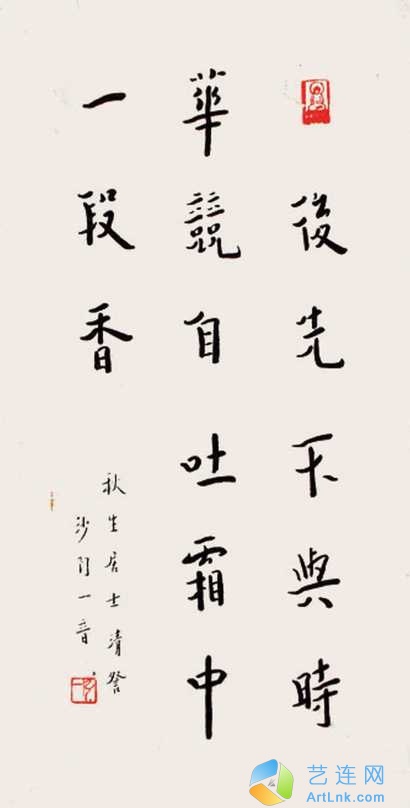 後先不與時
華競自吐霜中
一段香
秋生居士清詧
沙門一音
艺连网
ArtLnk.com